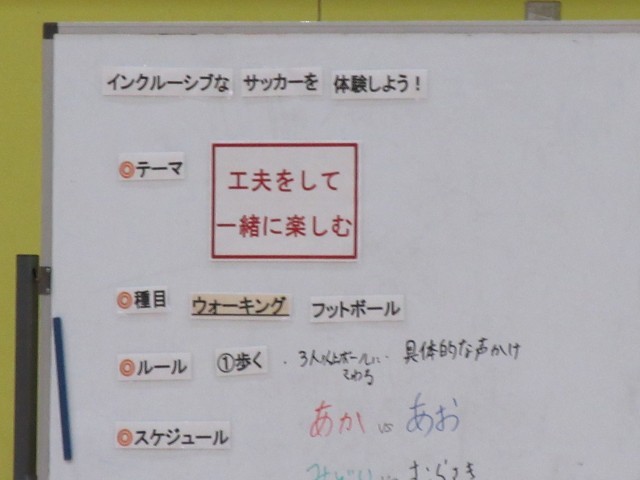 インクルーシブな サッカーを 体験しよう！
◎テーマ
工夫をして
一緒に楽しむ
◎種目 ウォーキング フットボール
◎ルール ①歩く ・3人以上ボールに ・具体的な声かけ
さわる
◎スケジュール あか vs あお
みどり vs むらさき